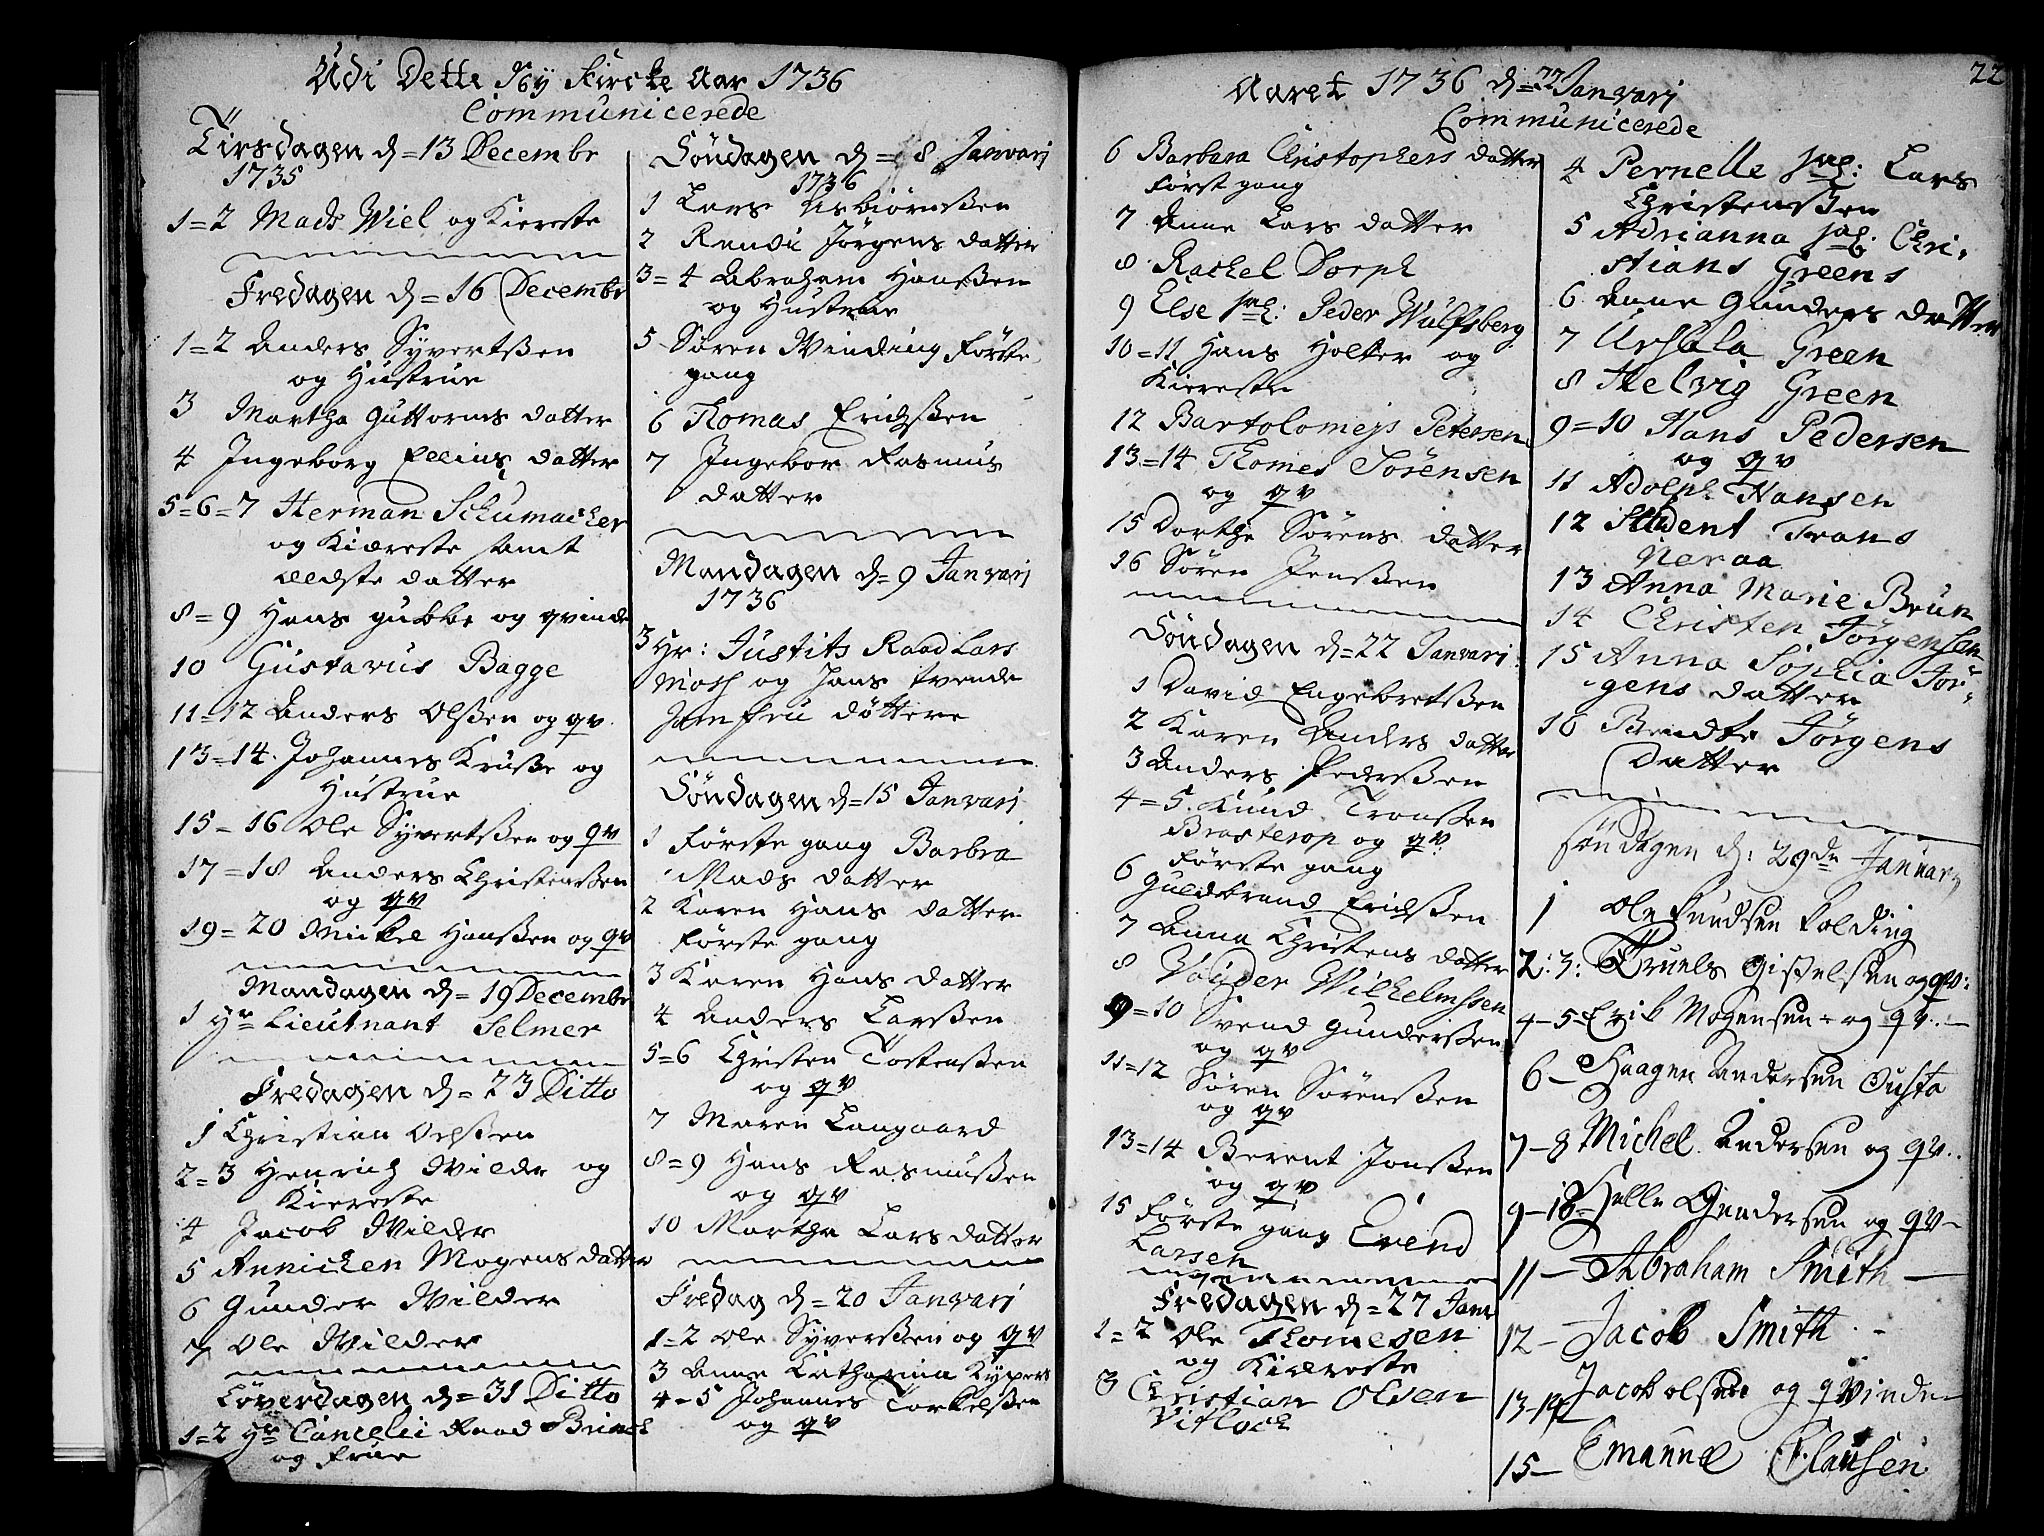 Udi Dette Ny Kircke Aar 1736
Communicerede
Tirsdagen d = 13 Decembr
1735
1=2 Mads Wiel og Kiereste
Fredagen d = 16 Decembr
1=2 Anders Syvertssen
og Hustrue
3 Martha Guttorms datter
4 Ingeborg Ellius datter
5=6=7 Herman Schumacher
og Kiæreste samt
ældste datter
8=9 Hans Gubbe og qvinde
10 Gustavus Bagge
11=12 Anders Olssen og qv.
13=14. Johannes Krusse og
Hustrue
15=16 Ole Syvertssen og qv
17=18 Anders Christenssen
og qv
19=20 Mickel Hanssen og qv
Mandagen d = 19 Decembr
1 Hr Lieutnant Selmer
Fredagen d = 23 Ditto
1 Christian Olssen
2=3 Henrich Wilder og
Kiereste
4 Jacob Wilder
5 Annichen Mogens datter
6 Gunder Wilder
7 Ole Wilder
Löverdagen d = 31 Ditto
1=2 Hr Cancelii Raad Brinch
og Frue
Söndagen d = 8 Janvarj
1736
1 Lars Asbiörnssen
2 Randi Jörgens datter
3=4 Abraham Hanssen
og Hustrue
5 Sören Winding Förste
gang
6 Thomas Erichssen
7 Ingebor Rasmus
datter
Mandagen d = 9 Janvarj
1736
3 Hr: Justits Raad Lars
Mosh og hans tvende
Jomfru döttere
Söndagen d = 15 Janvarj
1 Förste gang Barbra
Mads datter
2 Karen Hans datter
Förste gang
3 Karen Hans datter
4 Anders Larssen
5=6 Christen Tostenssen
og qv
7 Maren Langaard
8=9 Hans Rasmussen
og qv
10 Martha Lars datter
Fredag d = 20 Janvarj
1=2 Ole Syverssen og qv
3 Anne Catharina Kypers
4=5 Johannes Torkelssen
og qv
22
Aaret 1736 d = 22 Janvarj
Communicerede
6 Barbara Christophers datter
först gang
7 Anne Lars datter
8 Rachel Dorph
9 Else sal: Peder Wulfsberg
10=11 Hans Holter og
Kiereste
12 Bartolomejs Petersen
13=14 Thomes Sörensen
og qv
15 Dorthe Sörens datter
16 Sören Jenssen
Söndagen d = 22 Janvarj
1 David Engebretssen
2 Karen Anders datter
3 Anders Pederssen
4=5. Knud Tronssen
Brasterop og qv
Förste gang
6 Guldbrand Erichssen
7 Anna Christens datter
8 Wilhelmssen
9=10 Svend Gunderssen
og qv
11=12 Sören Sörenssen
og qv
13=14 Berent Jonssen
og qv
15 Förste gang Evend
Larsen
Fredagen d = 27 Janv
1=2 Ole Thomesen
og Kiæreste
3 Christian Olsen
Vitloch
4 Pernelle sal: Lars
Christenssen
5 Adrianna sal. Chri-
stians Greens
6 Anne Gunders datter
7 Ursula Green
8 Helvig Green
9=10 Hans Pedersen
og qv
11 Adolph Hansen
12 Student Frans
Neraa
13 Anna Marie Brun
14 Christen Jörgensen
15 Anna Sophia Jör-
gens datter
16 Bendte Jörgens
Datter
Söndagen d: 29de Januarj
1 Ole Knudsen Kolding
2:3: Truels Gisselsen og qv:
4-5- Erik Mogensen - og qv.-
6- Haagen Andersen Ousta
7-8 Michel Andersen og qv..
9-10- Helle Gundersen og qv-
11- Abraham Smith -
12- Jacob Smith -
13-14 Jacob olsen og qvinde-
15- Emanuel Clausen